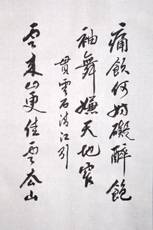 痛飲何妨礙醉袍
袖舞嫌天地窄
貫雲石清江引
云来山更佳云去山